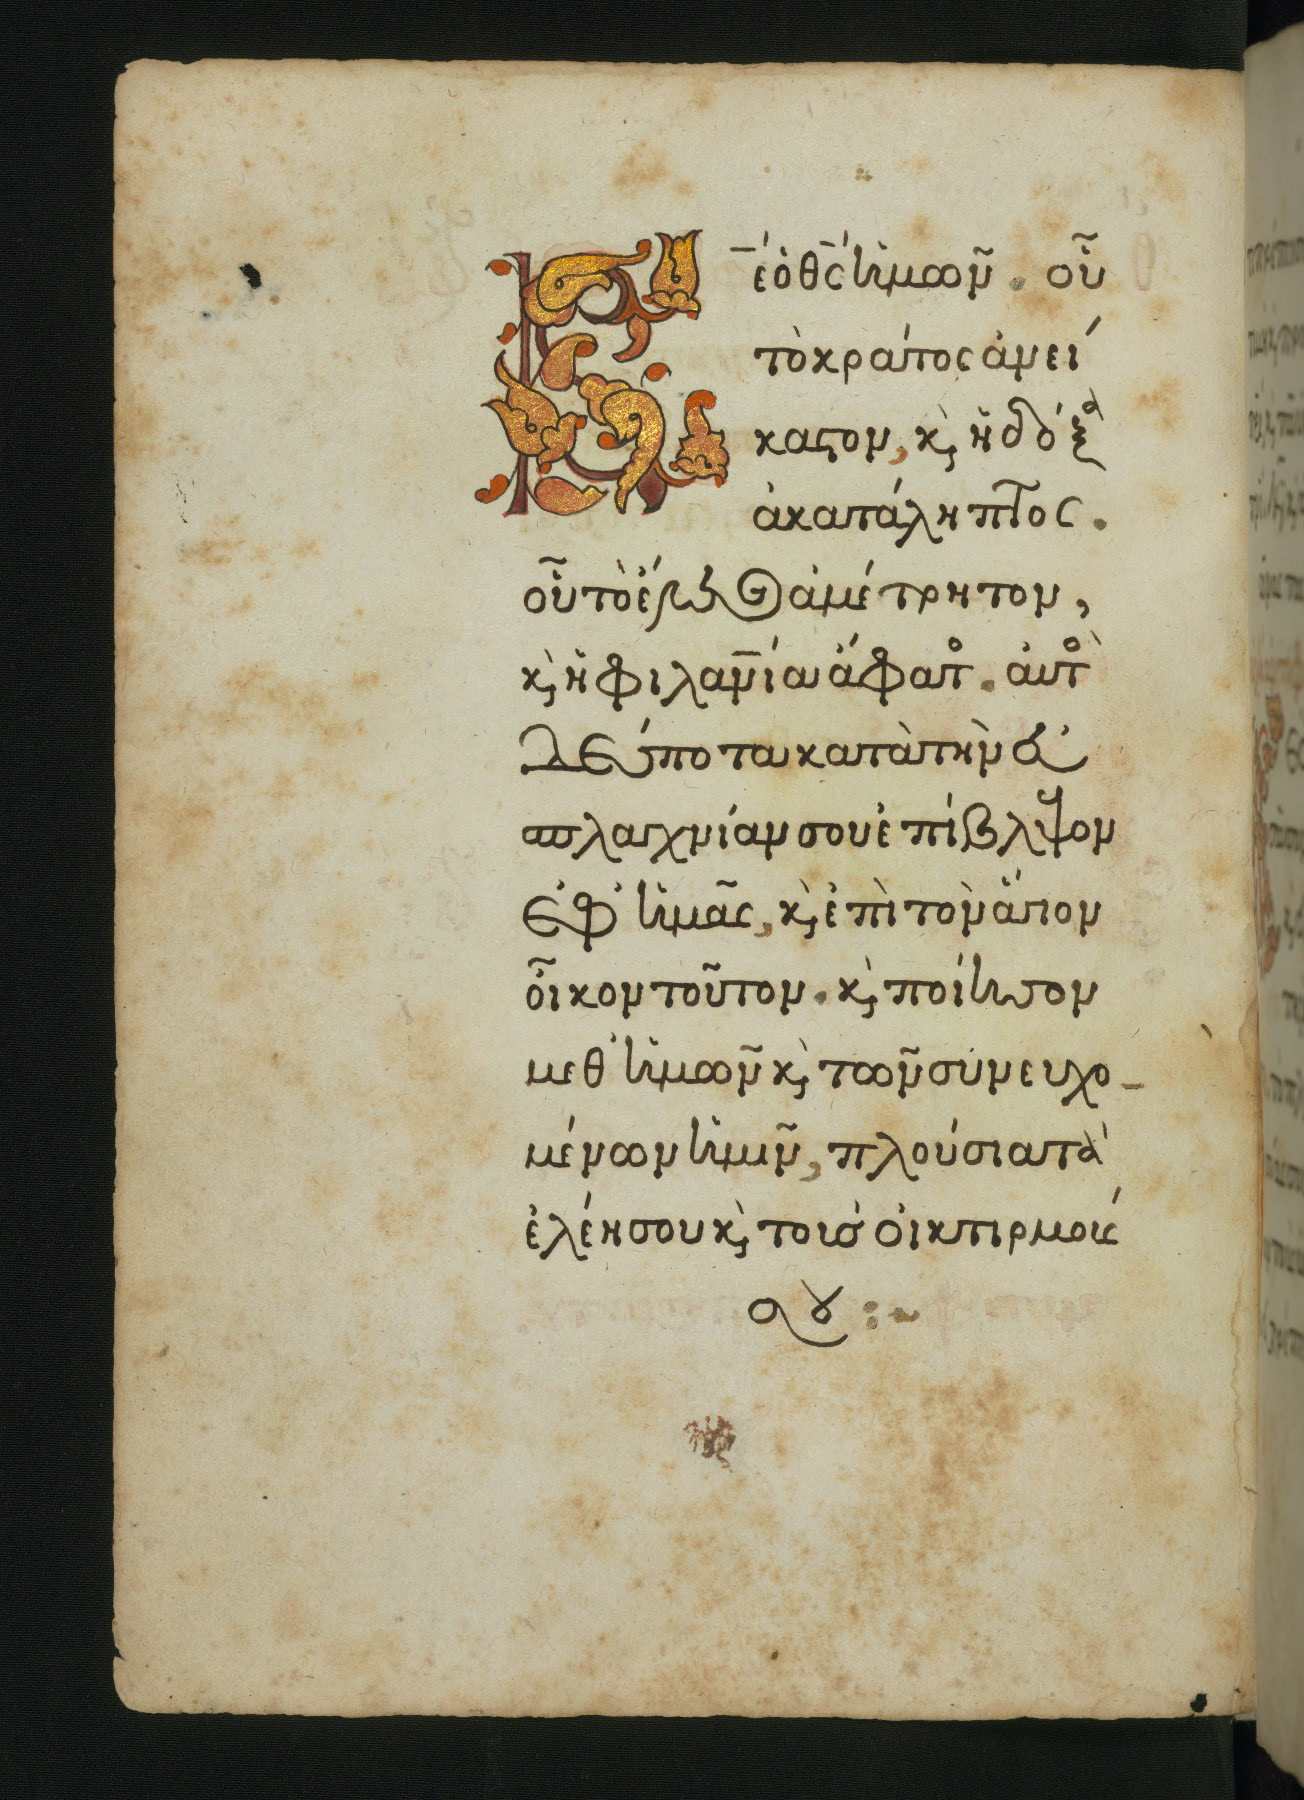 Κ̅ε ὁ θ̅ς ἡμῶν. οὗ
τὸ κράτος ἀνεί
καστον, κ, ἡ δόξα
ἀκατάληπτος.
οὗ τὸ ἔλεος ἀμέτρητον,
κ, ἡ φιλαν̅ία ἄφατος. αὐτὸς
δέσποτα κατὰ τὴν εὐ
σπλαγχνίαν σου ἐπίβλεψον
ἐφ' ἡμᾶς, κ, ἐπὶ τὸν ἅγιον
οἶκον τοῦτον. κ, ποίησον
μεθ' ἡμῶν κ, τῶν συνευχο-
μένων ἡμῖν, πλούσια τὰ
ἐλέη σου κ, τοὺς οἰκτιρμούς
σου :~